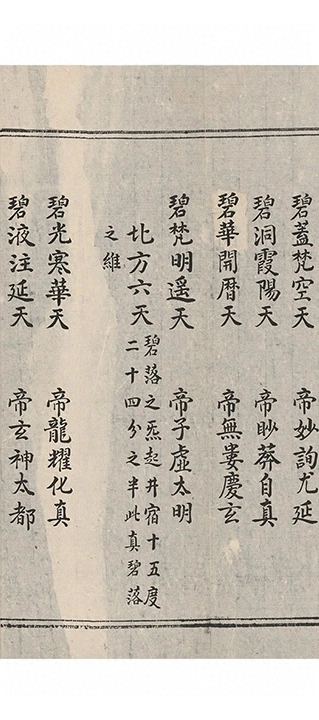 碧蓋梵空天 帝妙詢尤延
碧洞霞陽天 帝眇莽自真
碧華開曆天 帝無婁慶玄
碧梵明遥天 帝子虛太明
北方六天 碧落之炁起井宿十五度
二十四分之半此真碧落
之維
碧光寒華天 帝龍耀化真
碧液注延天 帝玄神太都